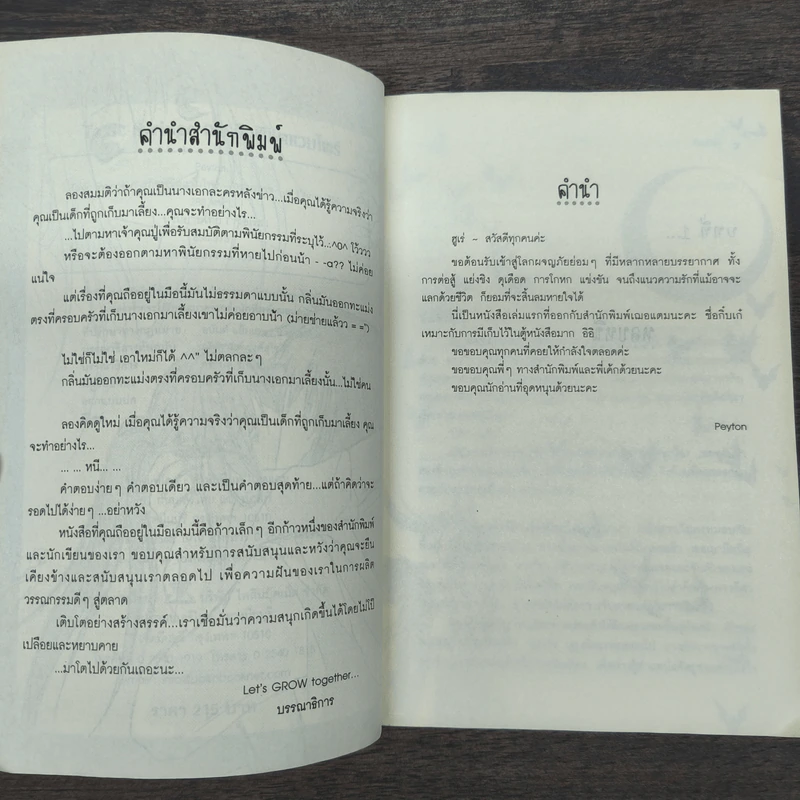 คำนำสำนักพิมพ์
ลองสมมติว่าถ้าคุณเป็นนางเอกละครหลังข่าว...เมื่อคุณได้รู้ความจริงว่า
คุณเป็นเด็กที่ถูกเก็บมาเลี้ยง...คุณจะทำอย่างไร...
...ไปตามหาเจ้าคุณปู่เพื่อรับสมบัติตามพินัยกรรมที่ระบุไว้...^o^ โว้ววว
หรือจะต้องออกตามหาพินัยกรรมที่หายไปก่อนน้า - -a?? ไม่ค่อย
แน่ใจ
แต่เรื่องที่คุณถืออยู่ในมือนี้มันไม่ธรรมดาแบบนั้น กลิ่นมันออกทะแม่ง
ตรงที่ครอบครัวที่เก็บนางเอกมาเลี้ยงเขาไม่ค่อยอาบน้ำ (ม่ายช่ายแล้วว = =")
ไม่ใช่ก็ไม่ใช่ เอาใหม่ก็ได้ ^^" ไม่ตลกละๆ
กลิ่นมันออกทะแม่งตรงที่ครอบครัวที่เก็บนางเอกมาเลี้ยงนั้น...ไม่ใช่คน
ลองคิดดูใหม่ เมื่อคุณได้รู้ความจริงว่าคุณเป็นเด็กที่ถูกเก็บมาเลี้ยง คุณ
จะทำอย่างไร...
... ... หนี... ...
คำตอบง่ายๆ คำตอบเดียว และเป็นคำตอบสุดท้าย...แต่ถ้าคิดว่าจะ
รอดไปได้ง่ายๆ ...อย่าหวัง
หนังสือที่คุณถืออยู่ในมือเล่มนี้คือก้าวเล็กๆ อีกก้าวหนึ่งของสำนักพิมพ์
และนักเขียนของเรา ขอบคุณสำหรับการสนับสนุนและหวังว่าคุณจะยืน
เคียงข้างและสนับสนุนเราตลอดไป เพื่อความฝันของเราในการผลิต
วรรณกรรมดีๆ สู่ตลาด
เติบโตอย่างสร้างสรรค์...เราเชื่อมั่นว่าความสนุกเกิดขึ้นได้โดยไม่โป๊
เปลือยและหยาบคาย
...มาโตไปด้วยกันเถอะนะ...
Let's GROW together...
บรรณาธิการ
คำนำ
ฮูเร่ ~ สวัสดีทุกคนค่ะ
ขอต้อนรับเข้าสู่โลกผจญภัยย่อมๆ ที่มีหลากหลายบรรยากาศ ทั้ง
การต่อสู้ แย่งชิง ดุเดือด การโกหก แข่งขัน จนถึงแนวความรักที่แม้อาจจะ
แลกด้วยชีวิต ก็ยอมที่จะสิ้นลมหายใจได้
นี่เป็นหนังสือเล่มแรกที่ออกกับสำนักพิมพ์เฌอแตมนะคะ ชื่อกิ๊บเก๋
เหมาะกับการมีเก็บไว้ในตู้หนังสือมาก อิอิ
ขอขอบคุณทุกคนที่คอยให้กำลังใจตลอดค่ะ
ขอขอบคุณพี่ๆ ทางสำนักพิมพ์และพี่เค้กด้วยนะคะ
ขอบคุณนักอ่านที่อุดหนุนด้วยนะคะ
Peyton